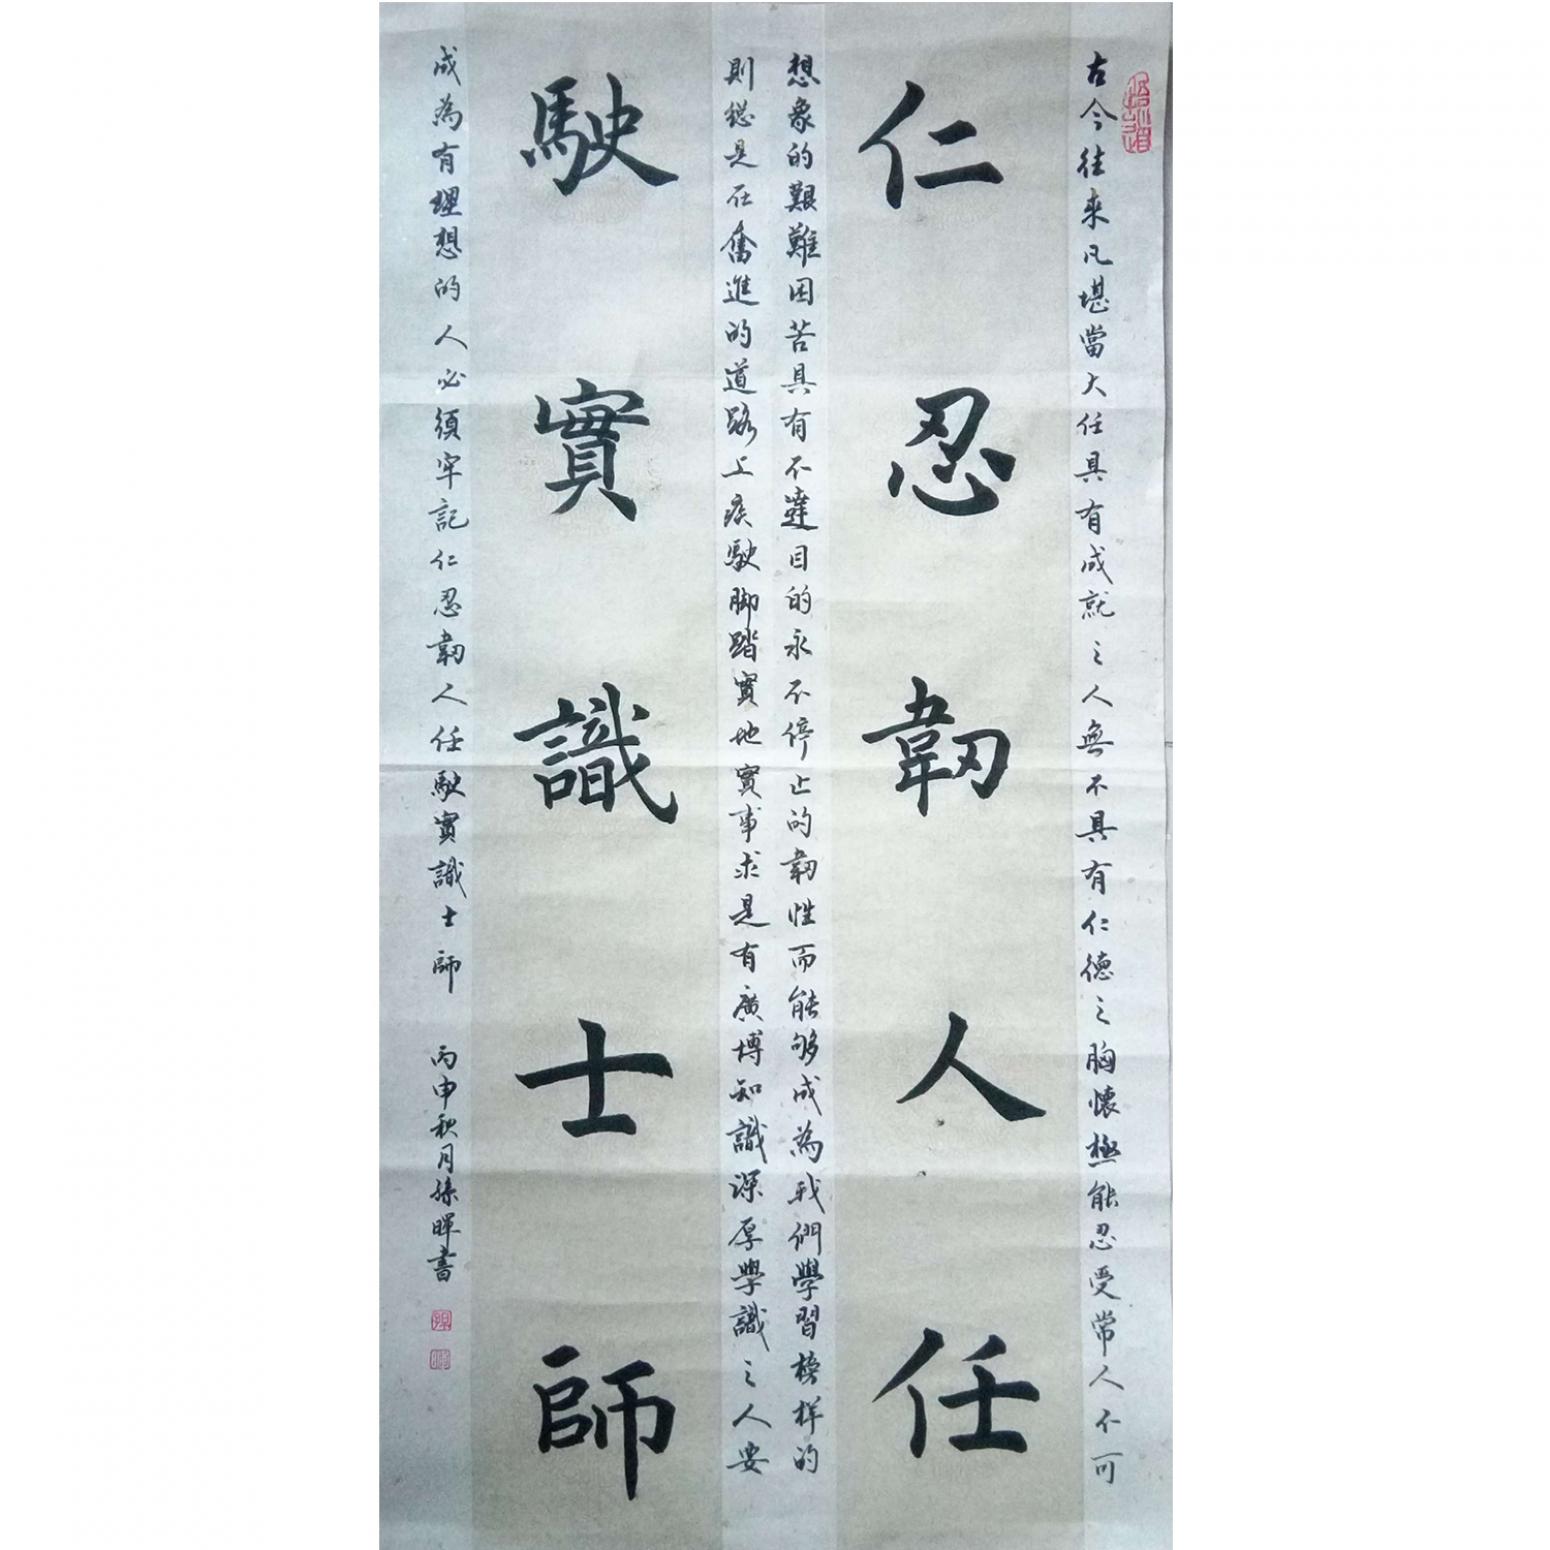 古今往来凡堪當大任具有成就之人無不具有仁德之胸懷極能忍受常人不可
仁忍韌人任
想象的艱難困苦具有不達目的永不停止的韌性而能够成為我們學習榜样的
則總是在奮進的道路上疾駛脚踏實地實事求是有廣博知識深厚學識之人要
駛實識士師
成為有理想的人必須牢記仁忍韌人任駛實識士師 丙申秋月孫暉書